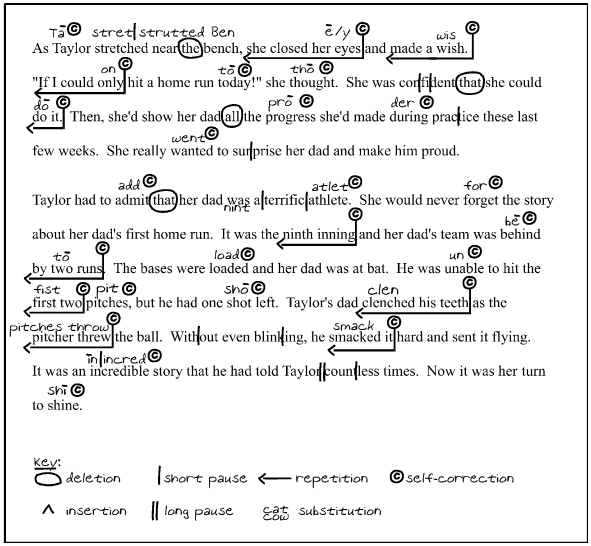 Tā © stret strutted Ben ē/y © wis ©
As Taylor stretched near the bench, she closed her eyes and made a wish.
on © tō © thō ©
"If I could only hit a home run today!" she thought. She was confident that she could
dō © prō © der ©
do it. Then, she'd show her dad all the progress she'd made during practice these last
went ©
few weeks. She really wanted to surprise her dad and make him proud.
add © atlet © for ©
Taylor had to admit that her dad was a terrific athlete. She would never forget the story
nint © bē ©
about her dad's first home run. It was the ninth inning and her dad's team was behind
tō © load © un ©
by two runs. The bases were loaded and her dad was at bat. He was unable to hit the
fist © pit © shō © clen ©
first two pitches, but he had one shot left. Taylor's dad clenched his teeth as the
pitches throw © smack ©
pitcher threw the ball. Without even blinking, he smacked it hard and sent it flying.
in incred ©
It was an incredible story that he had told Taylor countless times. Now it was her turn
shī ©
to shine.
Key:
deletion short pause repetition © self-correction
^ insertion long pause cat cow substitution